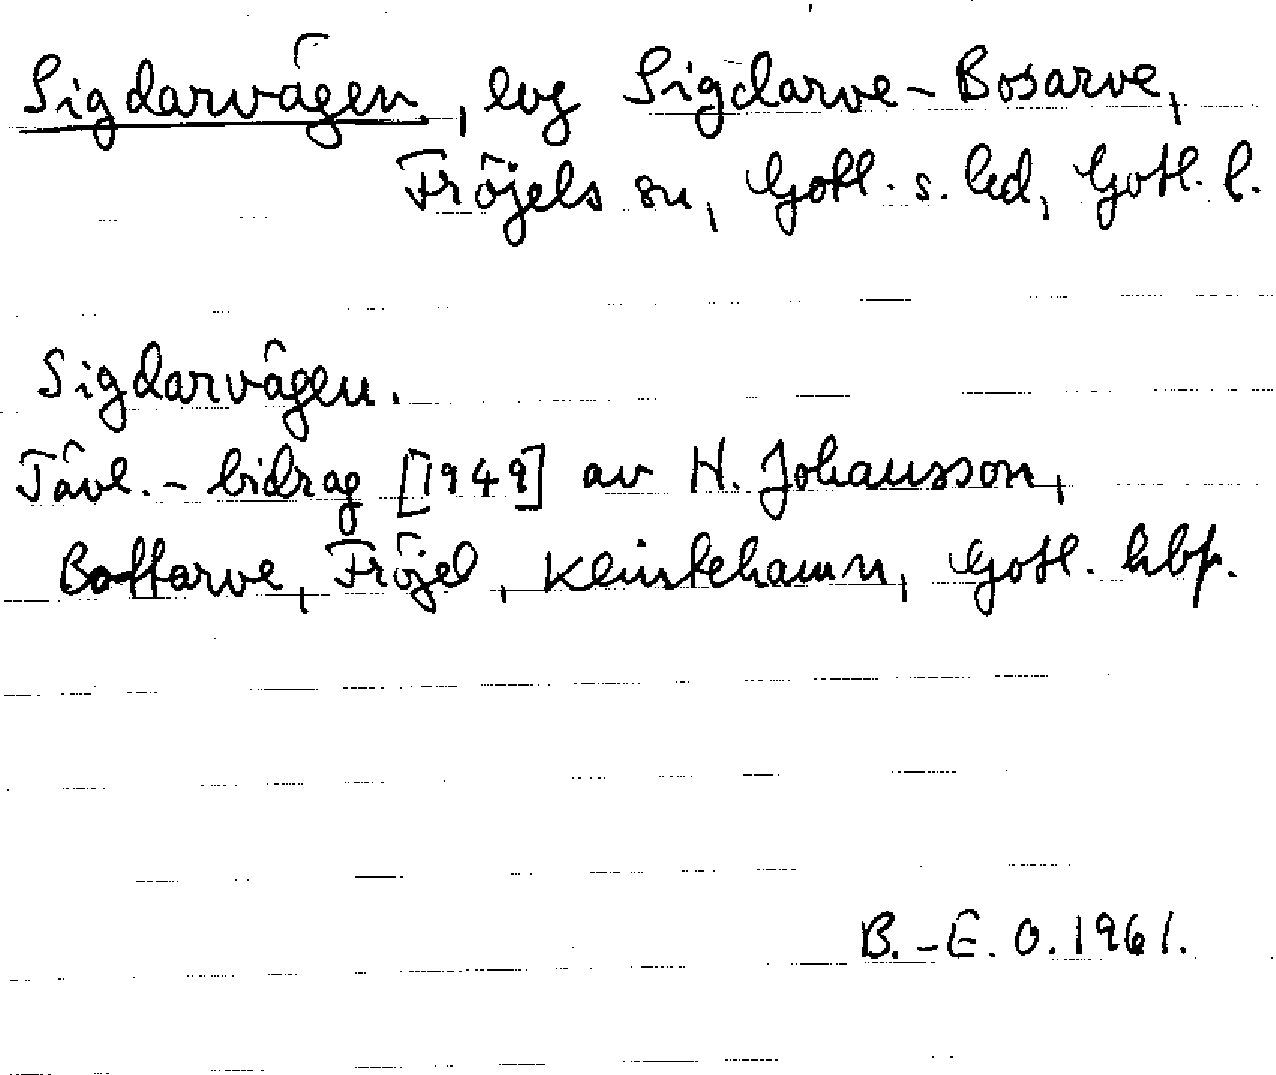 Sigdarvägen, lvg Sigdarve-Bosarve,
Fröjels sn, Gotl. s. hd, Gotl. l.
Sigdarvägen.
Tävl.-bidrag [1949] av H. Johansson,
Bottarve, Fröjel, Klintehamn, Gotl.
B.-E. O. 1961.